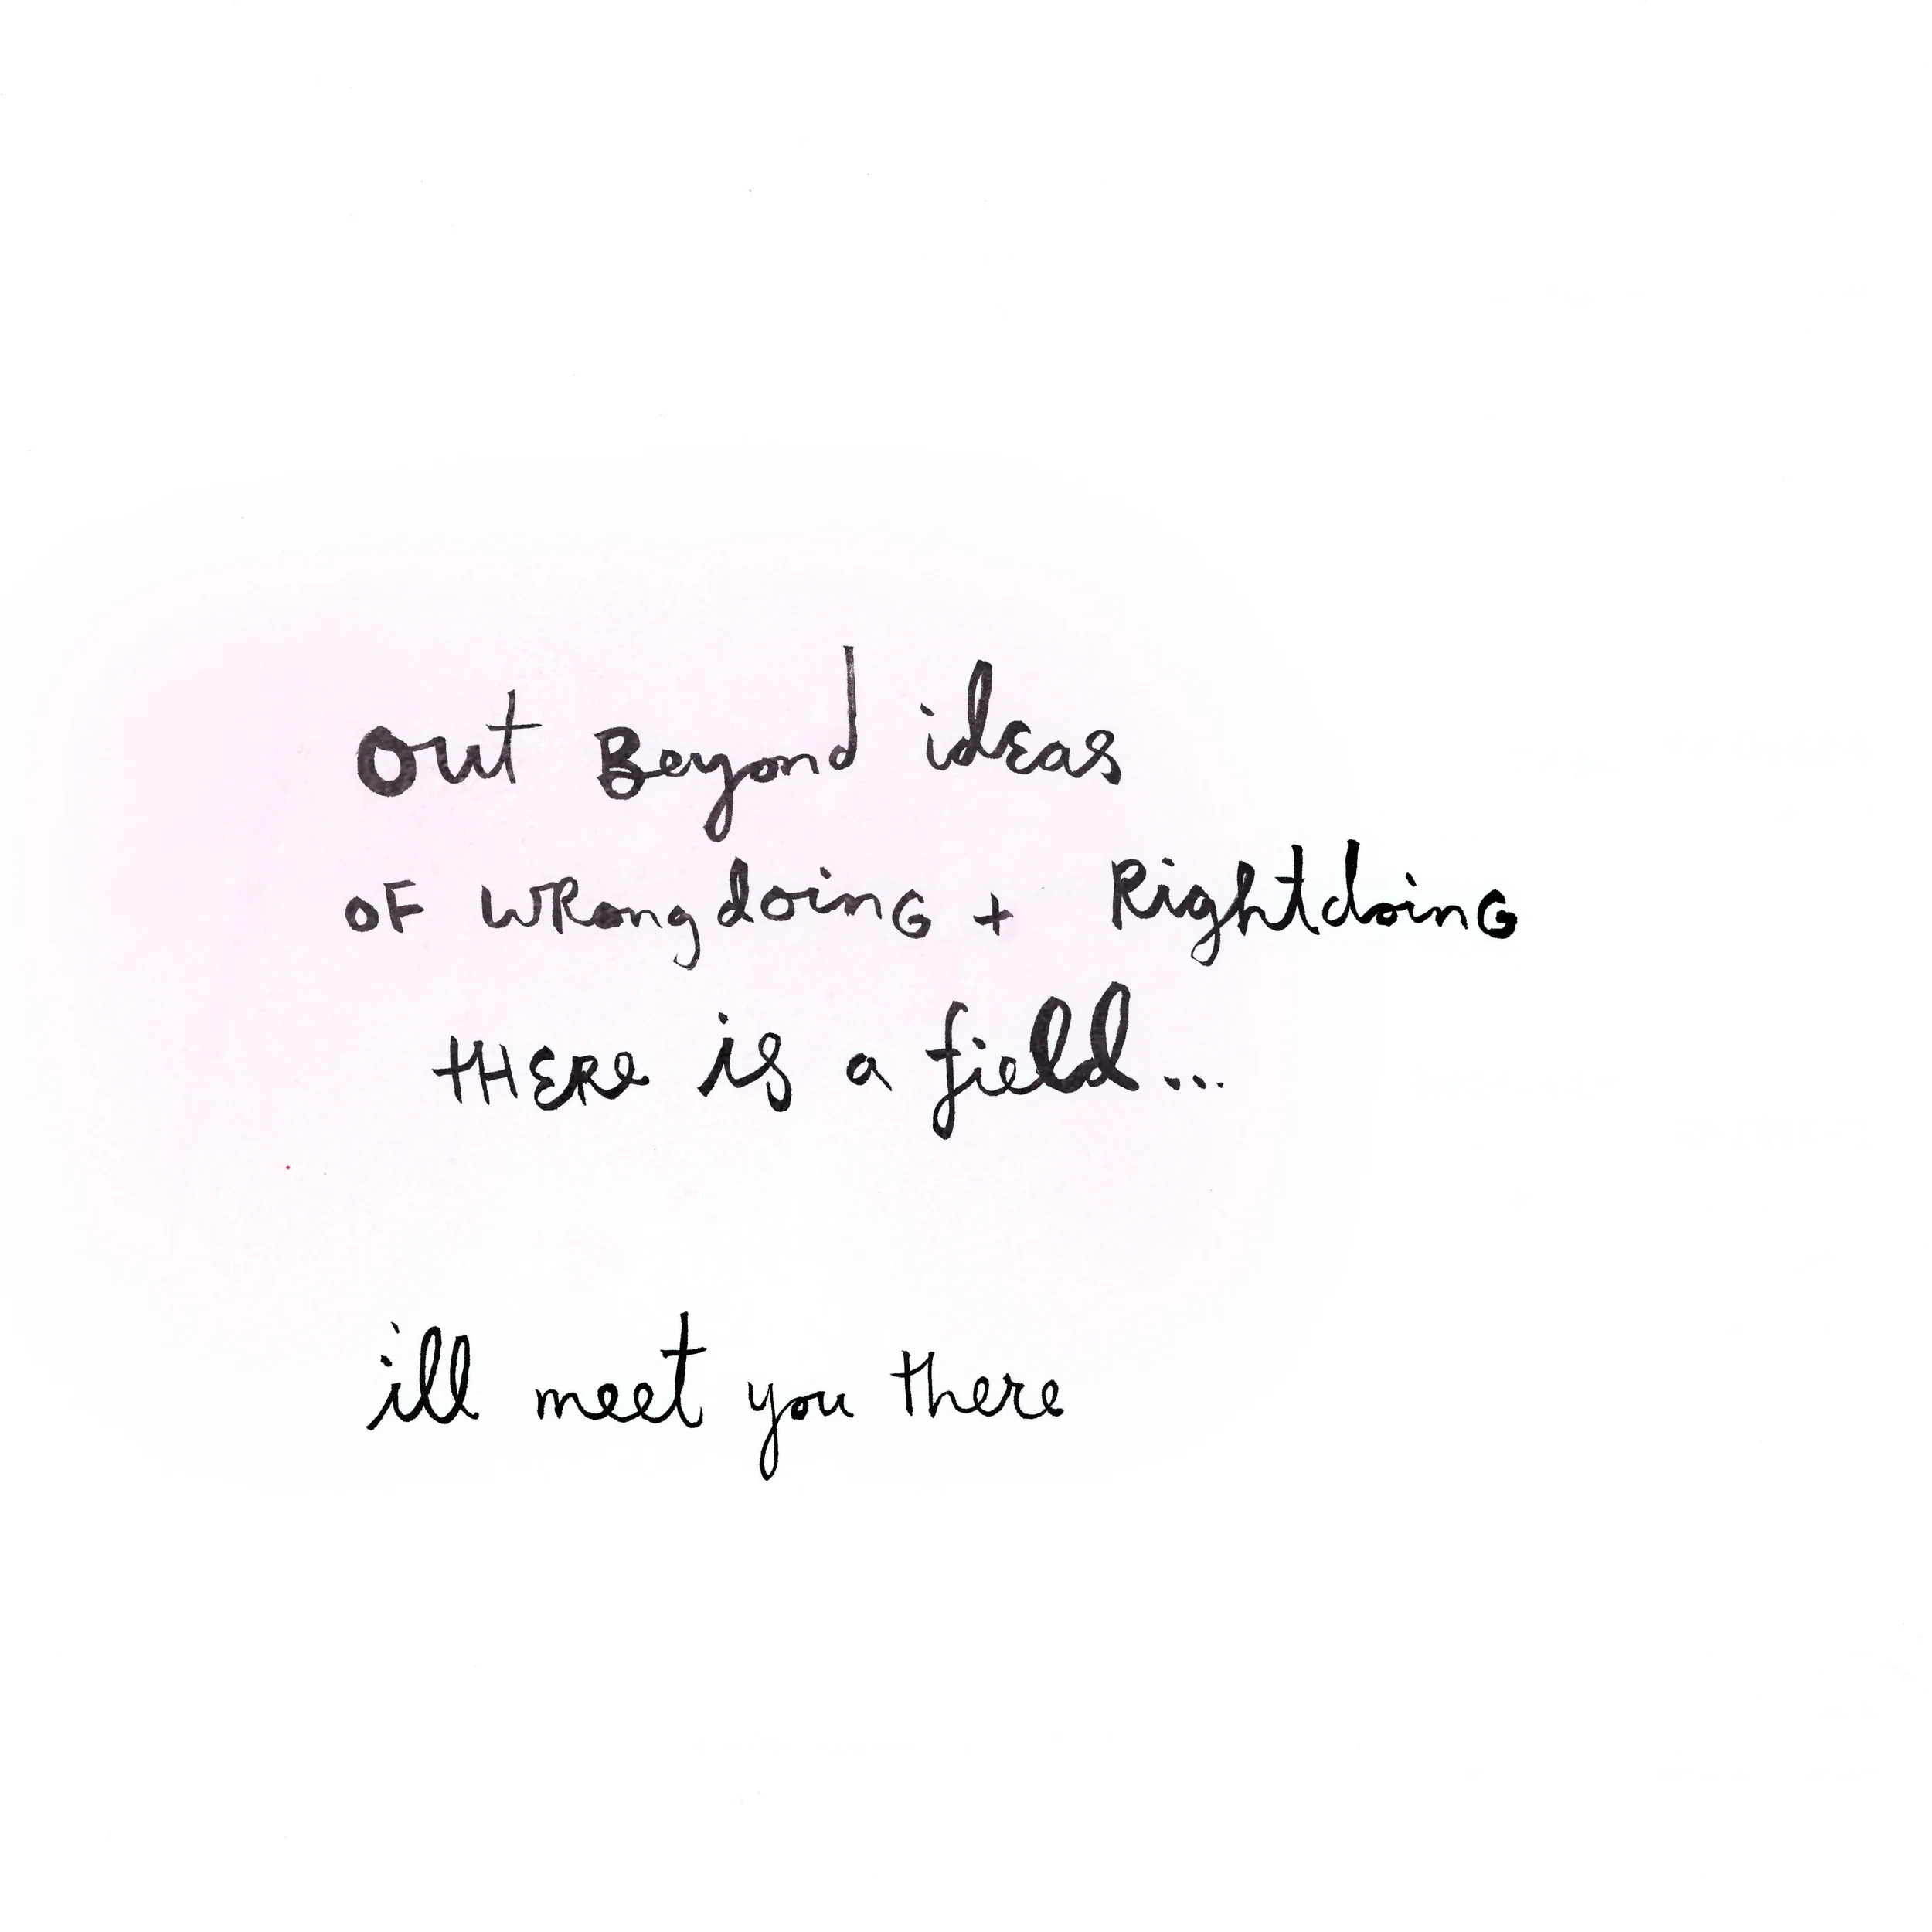 out Beyond ideas
oF wRongdoinG + RightdoinG
tHERe is a field...
ill meet you there